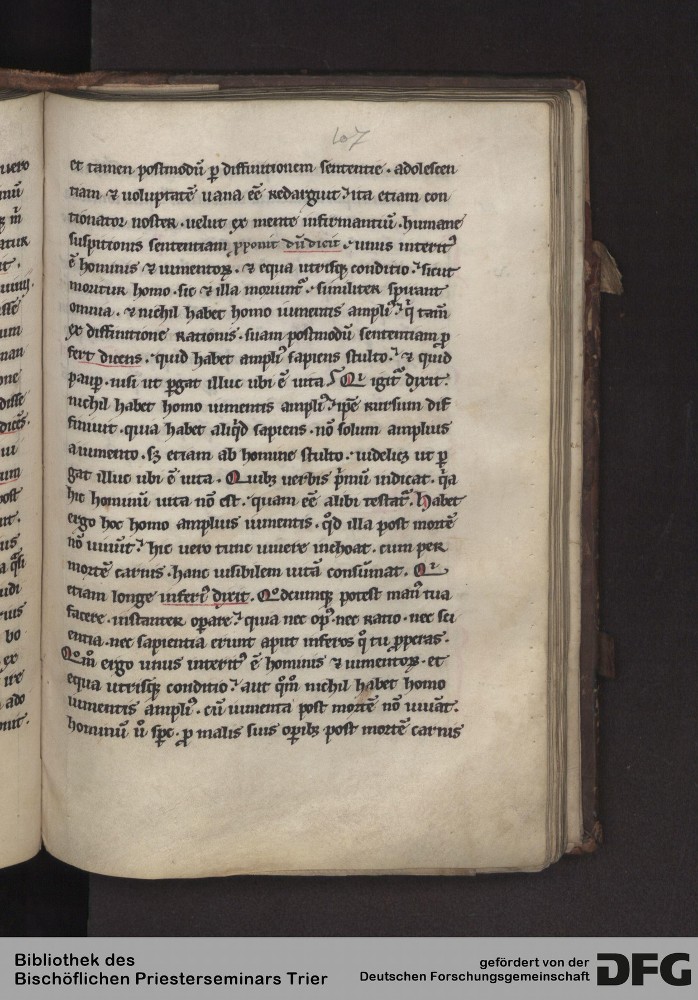 107
et tamen postmodū ꝑ diffinitionem sententie . adolescen
tiam ⁊ uoluptatē uana eē redarguit ita etiam con
tionator noster . uelut ex mente infirmantiū . humane
suspitionis sententiam ꝓponit dū dicit . unus interit᷒
ē hominis ⁊ iumentoꝝ . ⁊ equa utrisqꝫ conditio sicut
moritur homo . sic ⁊ illa moriunt᷑ . similiter spirant
omnia . ⁊ nichil habet homo iumentis ampli᷒ q̇ tam̄
ex diffinitione rationis . suam postmodū sententiam ꝓ
fert dicens . quid habet ampli᷒ sapiens stulto ⁊ quid
paup̱ . nisi ut ꝑgat illuc ubi ē uita Qi igit᷑ dixit
nichil habet homo iumentis ampli᷒ ipē rursum dif
finiuit . quia habet aliq̇d sapiens . nō solum amplius
a iumento . sꝫ etiam ab homine stulto . uidelicꝫ ut ꝑ
gat illuc ubi ē uita . Quibꝫ uerbis ṗmū indicat . q̇a
hic hominū uita nō est . quam eē alibi testat᷑ . Habet
ergo hoc homo amplius iumentis . qd̄ illa post mortē
nō uiuūt hic uero tunc uiuere inchoat . cum per
mortē carnis . hanc uisibilem uitā consūmat . Qi
etiam longe inferi᷒ dicit . Qodcumqꝫ potest man᷒ tua
facere . instanter operare quia nec op᷒ . nec ratio . nec sci
entia . nec sapientia erunt aput inferos q̊ tu ꝓperas .
Qom̄ ergo unus interit᷒ ē hominis ⁊ iumentoꝝ . et
equa utrisqꝫ conditio aut qm̄ nichil habet homo
iumentis ampli᷒ . cū iumenta post mortē nō uiuāt .
hominū u̇ sp̄c . ꝓ malis suis op̱ibꝫ post mortē carnis
Bibliothek des
Bischöflichen Priesterseminars Trier
gefördert von der
Deutschen Forschungsgemeinschaft
DFG